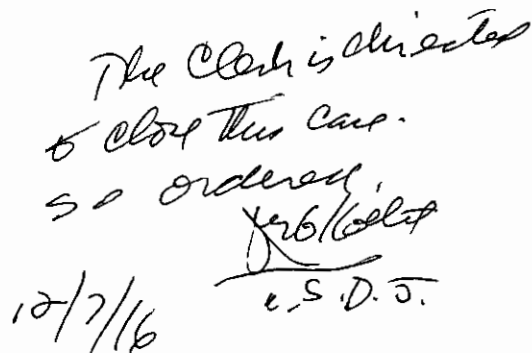 The Clerk is directed
to close this case.
so ordered.
U.S.D.J.
12/7/16